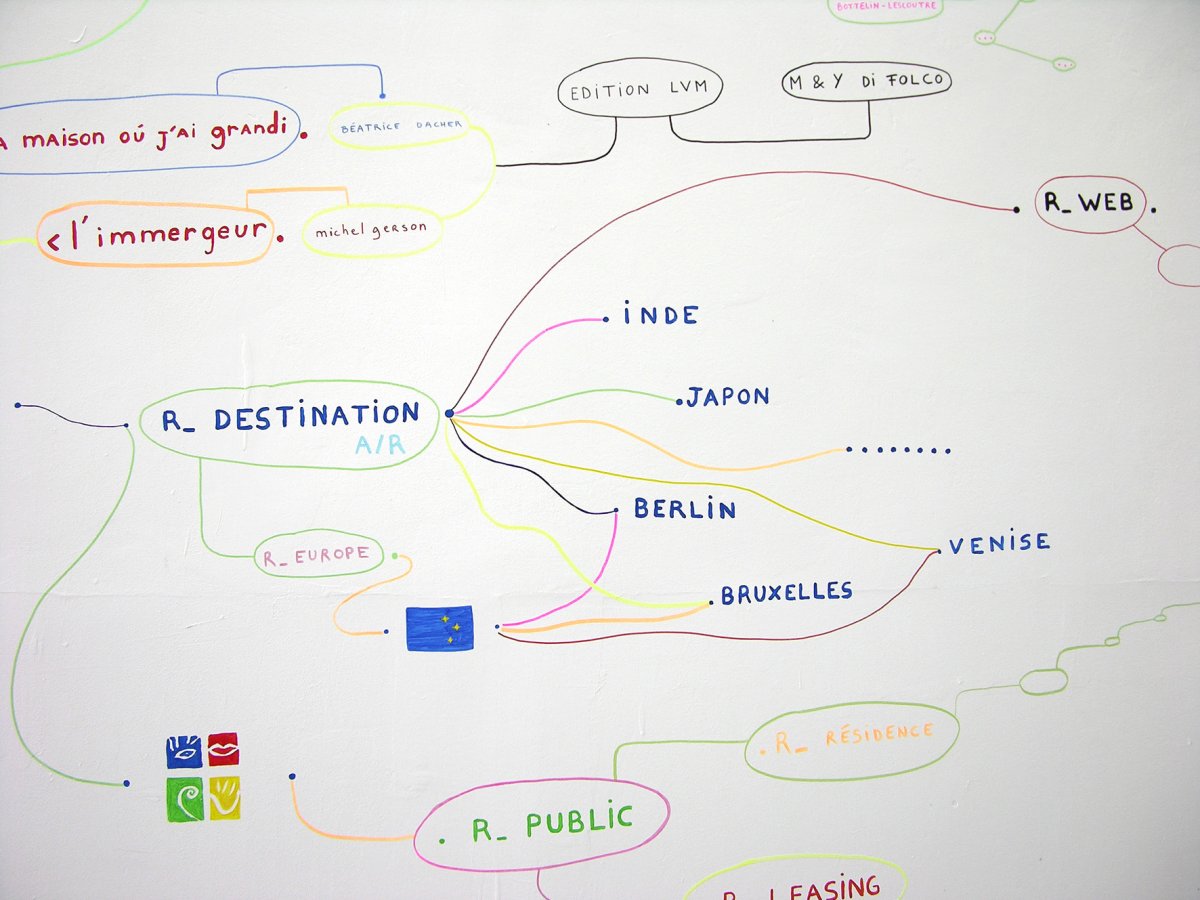 BOTTELIN-LESCOUTRE
EDITION LVM
M & Y Di FOLCO
MAISON OÚ J'AI GRANDI.
BÉATRICE DACHER
R_WEB.
< l'immergeur.
michel gerson
iNDE
R_ DESTINATION
A/R
JAPON
........
BERLIN
VENISE
R_EUROPE
BRUXELLES
. R_ RÉSIDENCE
. R_ PUBLIC
R_ LEASING